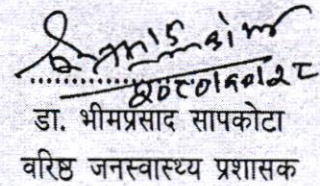 २०८०।१०।२८
डा. भीमप्रसाद सापकोटा
वरिष्ठ जनस्वास्थ्य प्रशासक